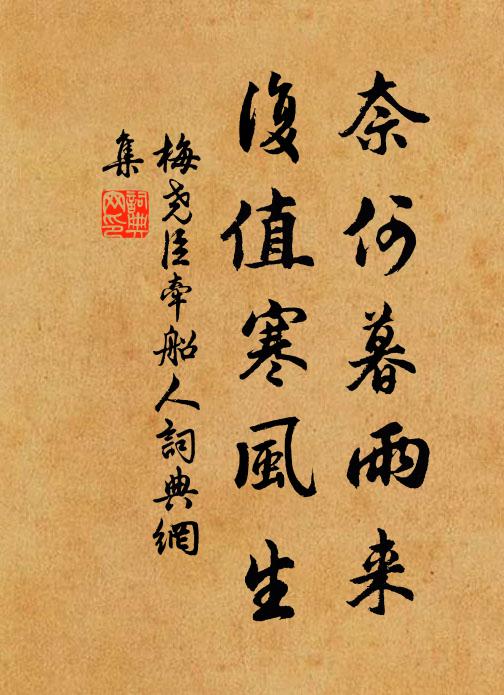 奈何暮雨来
復值寒風生
梅尧臣牽船人詞典網
集
詞典網印